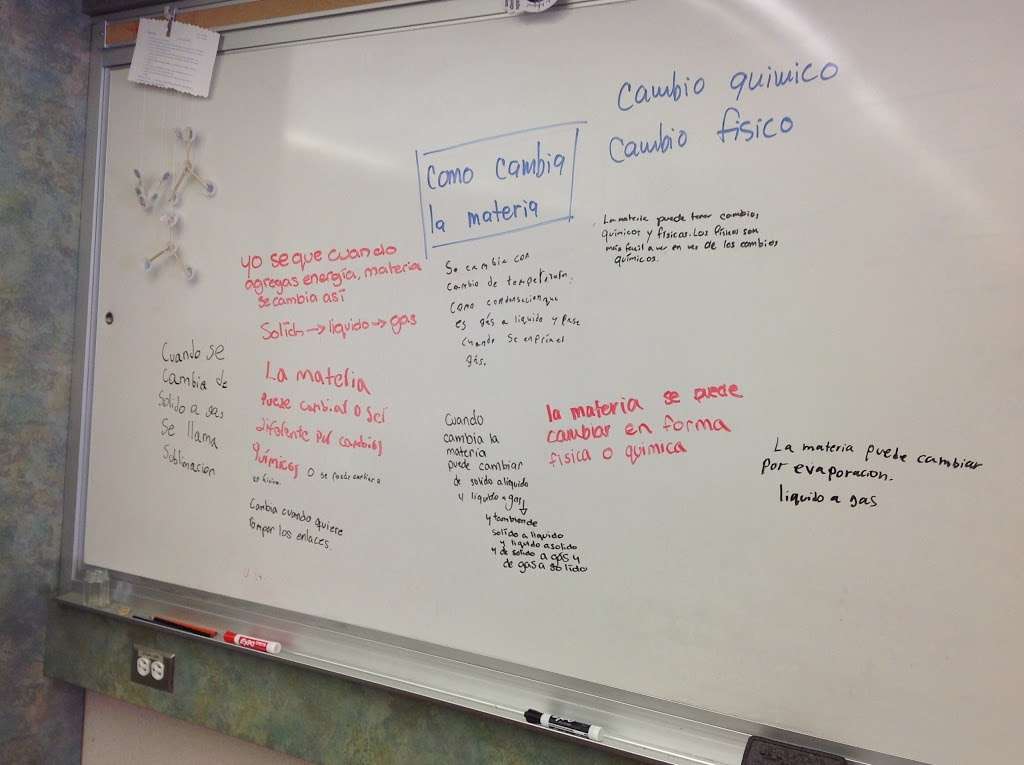 Cambio quimico
Cambio fisico
Como cambia
la materia
La materia puede tener cambios
quimicos y fisicas. Los fisicos son
mas facil a ver en ves de los cambios
quimicos.
yo se que cuando
agregas energía, materia
se cambia así
Solido → liquido → gas
Se cambia con
cambio de
Como condensacion que
es gás a liquido y pasa
cuando se enfria el
gás.
Cuando se
Cambia de
Solido a gas
Se llama
Sublimacion
La materia
Puese cambial o sei
difelente pol cambios
Químicos o se puede cambiar a
Cambia cuando quiere
romper los enlaces.
Cuando
cambia la
materia
puede cambiar
de solido a liquido
y liquido a gas
y tambien de
solido a liquido
y liquido a solido
y de solido a gas y
de gas a solido
la materia se puede
cambiar en forma
fisica o quimica
La materia puede cambiar
por evaporacion.
liquido a gas
EXPO